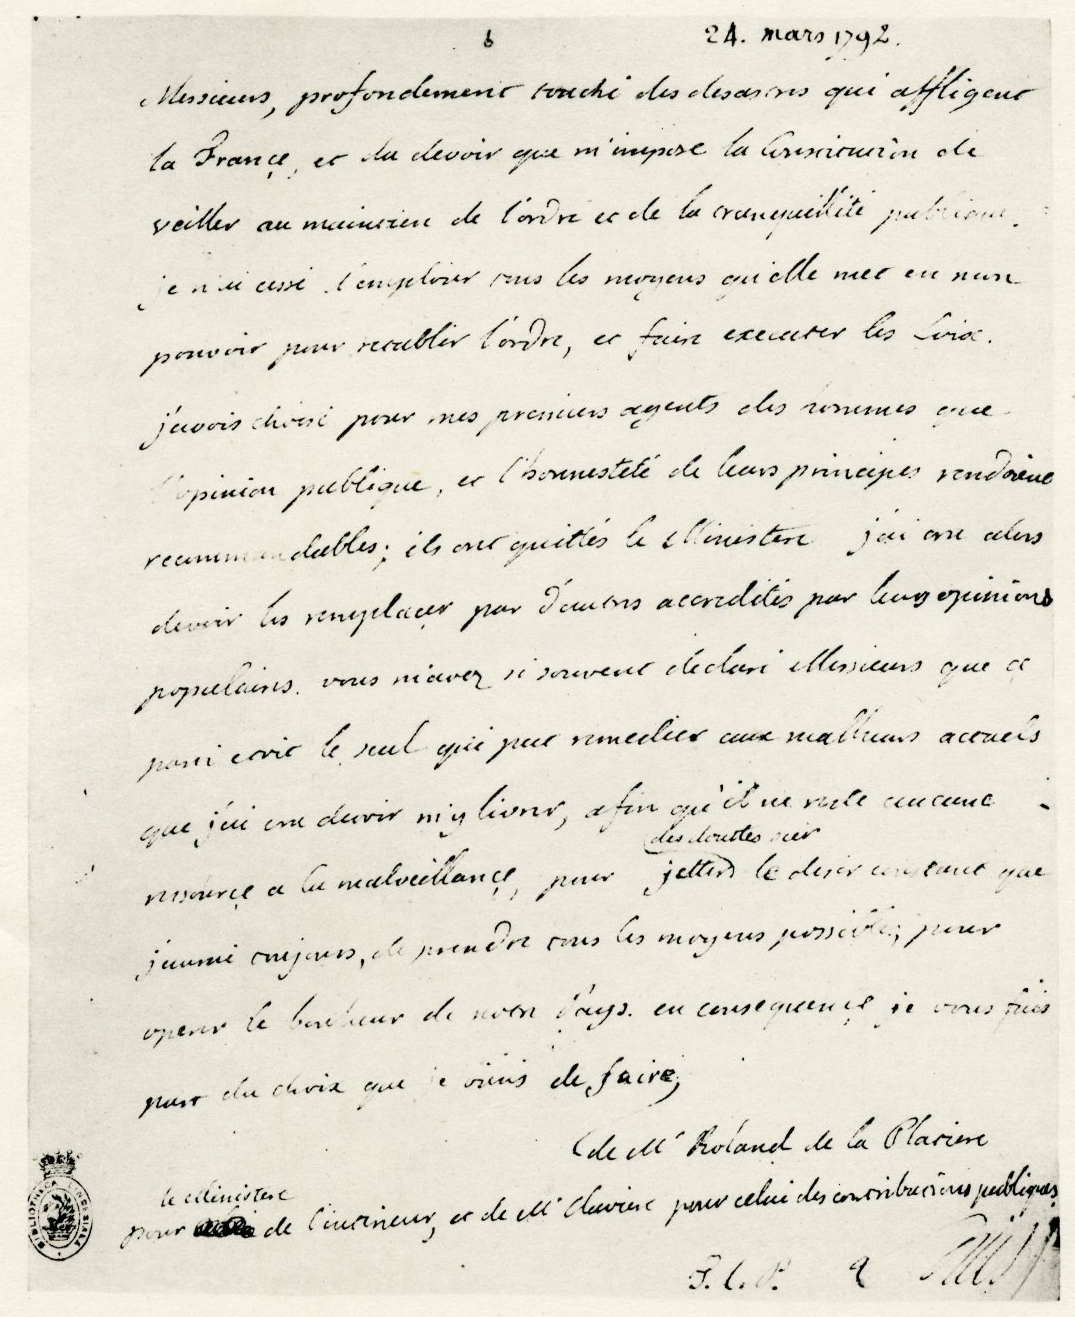 6
24. mars 1792.
Messieurs, profondement touché des desastres qui affligent
la France, et du devoir que m'impose la Constitution de
veiller au maintien de l'ordre et de la tranquillité publique,
je n'ai cessé d'emploier tous les moyens qu'elle met en mon
pouvoir pour retablir l'ordre, et faire executer les Loix.
j'avois choisi pour mes premiers agents des hommes que
l'opinion publique, et l'honnesteté de leurs principes rendoient
recommendables; ils ont quittés le Ministere j'ai cru alors
devoir les remplacer par d'autres accredités par leurs opinions
populaires. vous m'avez si souvent declaré Messieurs que ce
parti etoit le seul qui put remedier aux malheurs actuels
que j'ai cru devoir m'y livrer, afin qu'il ne reste aucune
des douttes sur
ressource a la malveillance, pour jetter le desir constant que
j'aurai toujours, de prendre tous les moyens possibles pour
operer le bonheur de notre Pays. en consequence je vous fais
part du choix que je viens de faire,
de Mr Roland de la Platiere
le Ministere
pour de l'interieur, et de Mr Claviere pour celui des contributions publiques
BIBLIOTHECA LINDESIANA